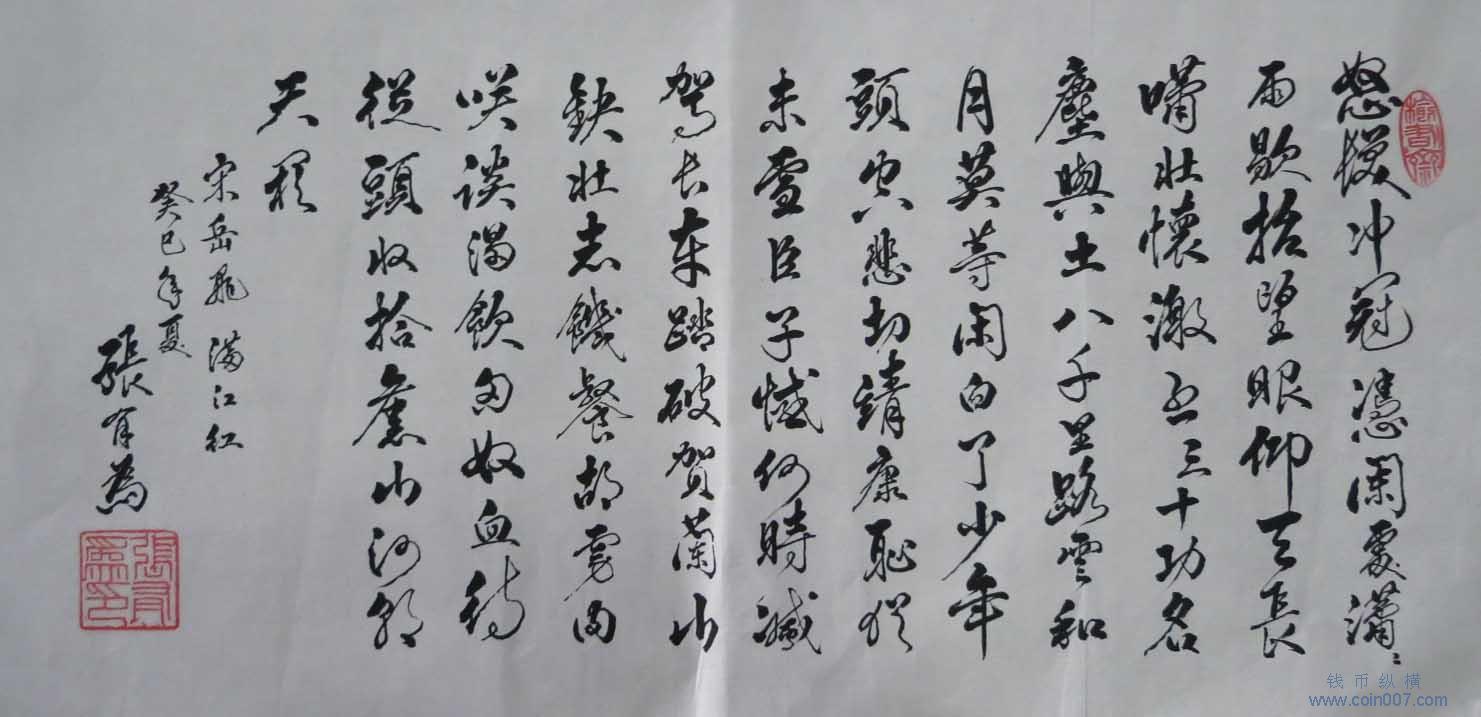 怒髮冲冠憑闌處瀟〻
雨歇抬望眼仰天長
嘯壯懷激烈三十功名
塵與土八千里路雲和
月莫等闲白了少年
頭空悲切靖康恥猶
未雪臣子憾何時滅
驾長車踏破賀蘭山
缺壯志饑餐胡虜肉
咲談渴飲匈奴血待
從頭收拾舊山河朝
天闕
宋岳飛 滿江红
癸巳年夏
張有為
張有為印
钱币纵横
www.coin007.com